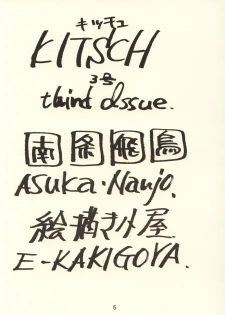 キッチュ
KITSCH
3号
third Issue.
南条飛鳥
ASuKa・Nanjo.
絵描き小屋
E-KAKIGOYA.